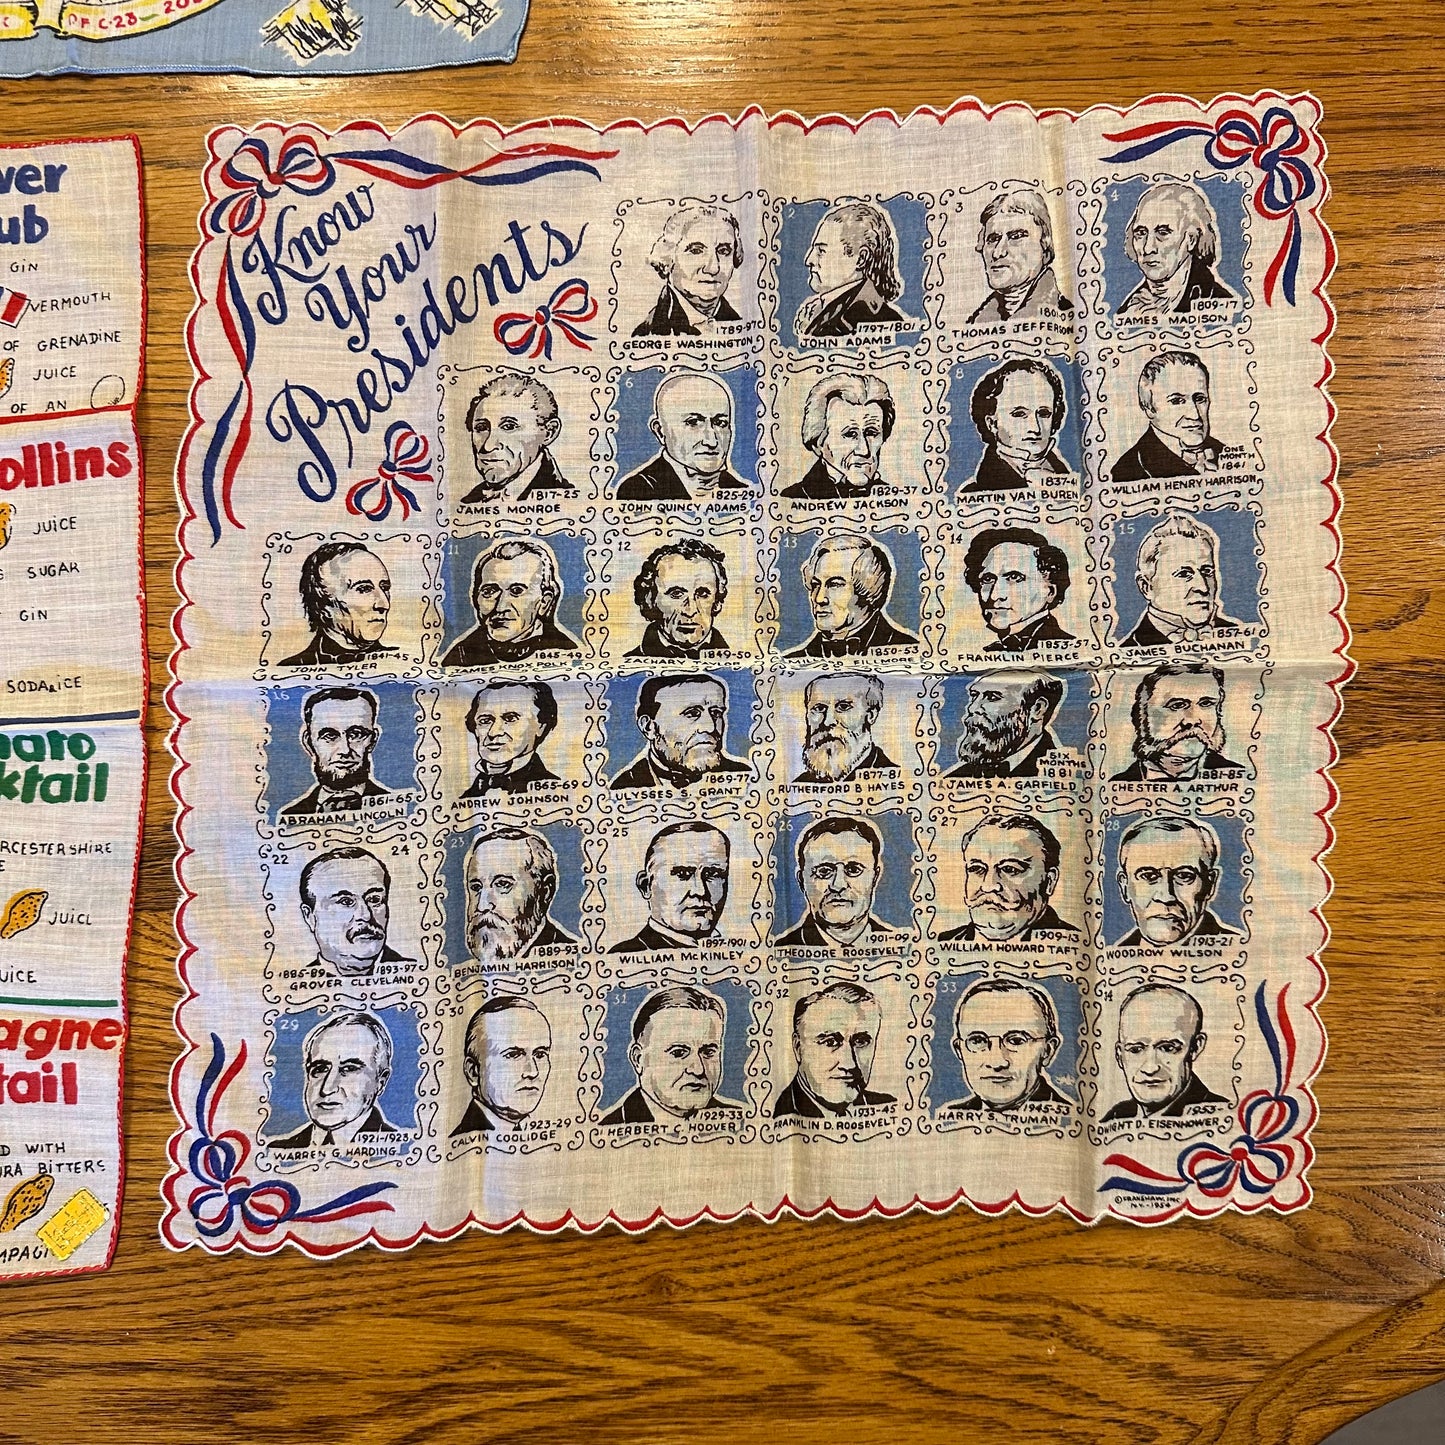 OF C-23— 20
ver
ub
GIN
VERMOUTH
OF GRENADINE
JUICE
OF AN
ollins
JUICE
SUGAR
GIN
SODA & ICE
ato
ktail
RCESTERSHIRE
E
JUICE
JUICE
agne
tail
D WITH
URA BITTERS
MPAGN
Know
Your
Presidents
1789-97
GEORGE WASHINGTON
2
1797-1801
JOHN ADAMS
3
1801-09
THOMAS JEFFERSON
4
1809-17
JAMES MADISON
5
1817-25
JAMES MONROE
6
1825-29
JOHN QUINCY ADAMS
7
1829-37
ANDREW JACKSON
8
1837-41
MARTIN VAN BUREN
9
ONE
MONTH
1841
WILLIAM HENRY HARRISON
10
1841-45
JOHN TYLER
11
1845-49
JAMES KNOX POLK
12
1849-50
ZACHARY TAYLOR
13
1850-53
MILLARD FILLMORE
14
1853-57
FRANKLIN PIERCE
15
1857-61
JAMES BUCHANAN
16
1861-65
ABRAHAM LINCOLN
1865-69
ANDREW JOHNSON
1869-77
ULYSSES S. GRANT
19
1877-81
RUTHERFORD B HAYES
SIX
MONTHS
1881
JAMES A. GARFIELD
1881-85
CHESTER A. ARTHUR
22 24
1885-89 1893-97
GROVER CLEVELAND
23
1889-93
BENJAMIN HARRISON
25
1897-1901
WILLIAM McKINLEY
26
1901-09
THEODORE ROOSEVELT
27
1909-13
WILLIAM HOWARD TAFT
28
1913-21
WOODROW WILSON
29
1921-1923
WARREN G. HARDING
30
1923-29
CALVIN COOLIDGE
31
1929-33
HERBERT C. HOOVER
32
1933-45
FRANKLIN D. ROOSEVELT
33
1945-53
HARRY S. TRUMAN
34
1953-
DWIGHT D. EISENHOWER
© CRANSHAW, INC.
N.Y. - 1954